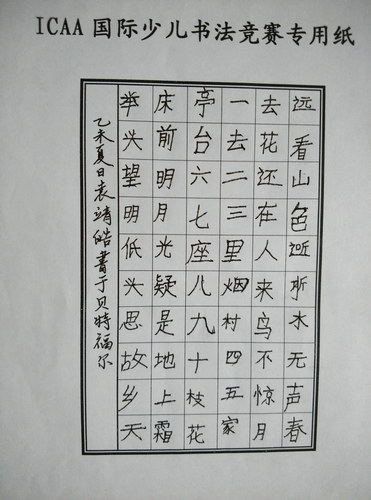 ICAA国际少儿书法竞赛专用纸
远看山色近听水无声春
去花还在人来鸟不惊月
一去二三里烟村四五家
亭台六七座八九十枝花
床前明月光疑是地上霜
举头望明低头思故乡天
乙未夏日袁靖皓書于贝特福尔